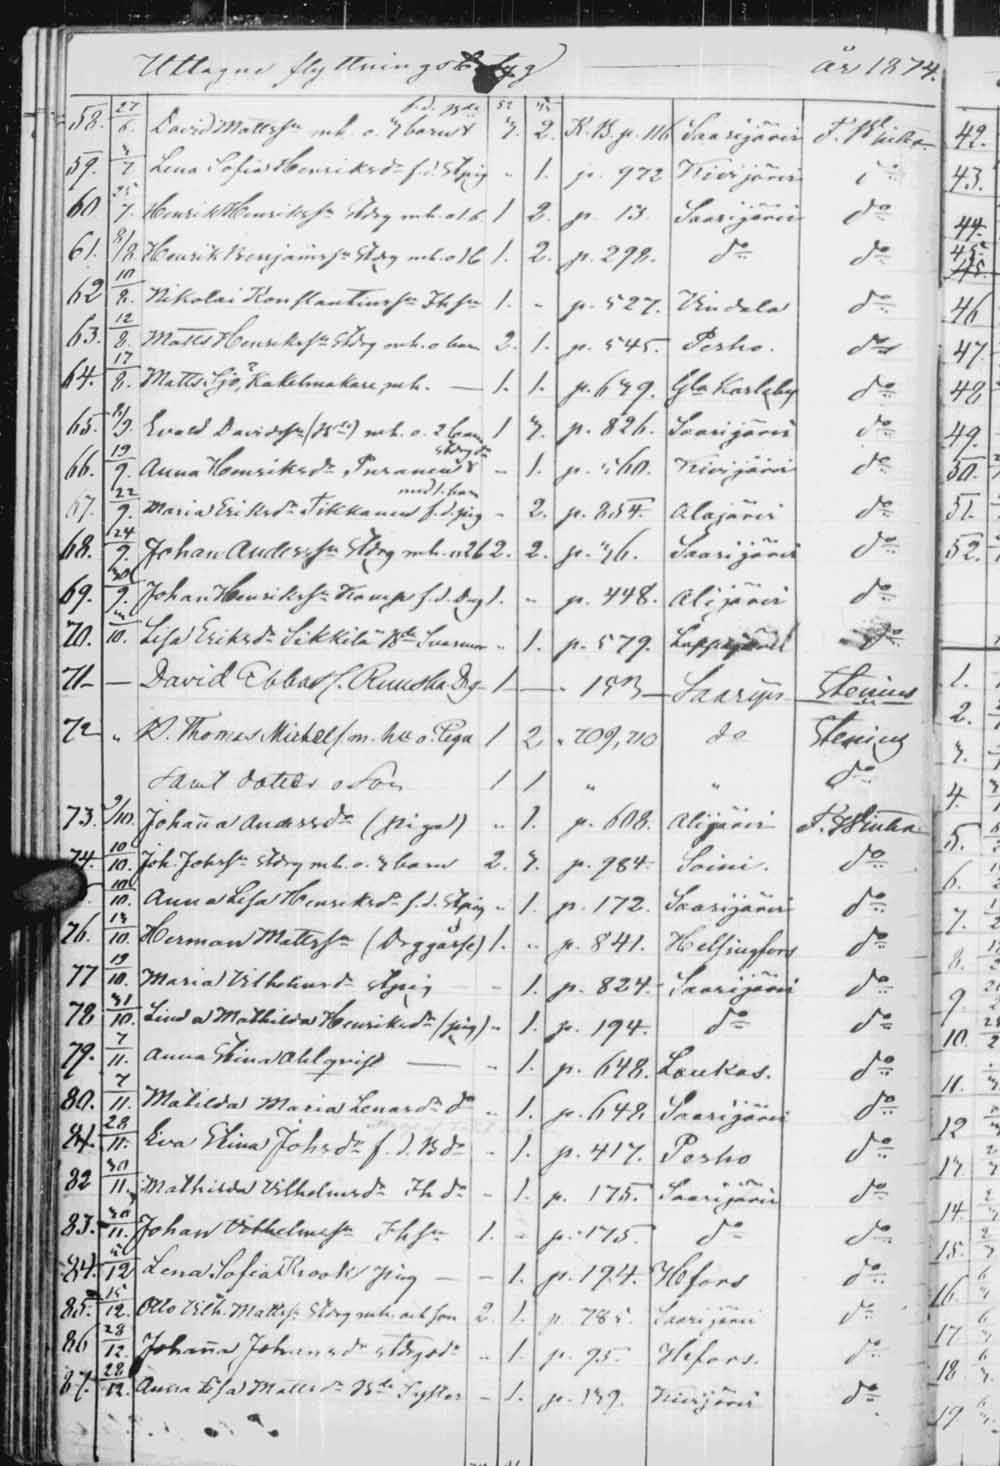 Uttagne flyttningsbetyg år 1874.
f.d. Bde 52 43
58. 27/6. David Mattss n mh. o. 3 barn 3. 2. K.B. p. 116 Saarijärvi F. Wirka
59. 3/7 Lena Sofia Henriksd r f.d. Stpig " 1. p. 972 Kivijärvi d o
60. 25/7. Henrik Henrikss n Stdrg m.h. o 1 b. 1 2. p. 13. Saarijärvi d o
61. 8/8. Henrik Benjamins n Stdrg m.h. o 1 b 1. 2. p. 298. d o d o
62 10/8. Nikolai Konstantinss n Ihs n 1. - p. 527. Vindala d o
63. 12/8. Matts Henrikss n Stdrg m.h. o barn 2. 1. p. 545. Perho. d o
64. 17/8. Matts Sjö, Kakelmakare, m.h. — 1. 1. p. 639. Gla Karleby d o
65. 8/9. Evald Davidss n (Bde) m.h. o. 2 barn 1 3. p. 826. Saarijärvi d o
Stdrgd r
66. 19/9. Anna Henriksd r Puranen - 1. p. 560. Kivijärvi d o
med 1. barn
67. 22/9. Maria Eriksd r Tikkanen f.d. pig - 2. p. 854. Alajärvi d o
68. 24/9. Johan Anderss n Stdrg m.h. o 2 b 2. 2. p. 36. Saarijärvi d o
69. 30/9. Johan Henrikss n Kamp f.d. Drg 1. " p. 448. Alajärvi d o
70. /10. Lisa Eriksd r Sikkilä Bde " 1. p. 579. Lappajärvi d o
71 — — David Ebbas s. Ruuska Drg 1 — " 153 — Saarijär. Stenius
72 " B. Thomas Mickels s. m. hu o. Piga 1 2 " 209, 210 do Stenius
Samt dotter o Son 1 1 " " d o
73. 9/10. Johanna Andersd r (piga) " 1. p. 608. Alajärvi F. Wirka
74. 10/10. Joh. Johss n Stdrg m.h. o. 3 barn 2. 3. p. 984. Soini. d o
10/10. Anna Lisa Henriksd r f.d. Stpig " 1. p. 172. Saarijärvi d o
76. 13/10. Herman Mattss n (Drggosse) 1. " p. 841. Helsingfors d o
77 19/10. Maria Vilhelmsd r Stpig - 1. p. 824. Saarijärvi d o
78 31/10. Linda Mathilda Henriksd r (pig) " 1. p. 194. d o d o
79. 7/11. Anna Stina Ahlqvist — " 1. p. 648. Laukas. d o
80. 7/11. Matilda Maria Lenasd r d o " 1. p. 648 Saarijärvi d o
81. 28/11. Eva Stina Johsd r f.d. Bd r - 1. p. 417. Perho d o
82 30/11. Mathilda Vilhelmsd r Ihd r - 1. p. 175. Saarijärvi d o
83. 30/11. Johan Vilhelmss n Ihs n 1. - p. 175. d o d o
84. 5/12 Lena Sofia Krook pig — - 1. p. 194. Hfors d o
85. 15/12. Otto Vilh. Mattss n Stdrg m.h. och son 2. 1. p. 785. Saarijärvi d o
86 28/12. Johanna Johansd r Stdrgd r " 1. p. 95. Hfors. d o
87. 28/12. Anna Lisa Mattsd r Bde Syster - 1. p. 139. Kivijärvi d o
49.
43.
44.
45.
46
47.
48
49.
50.
51.
52.
1.
2.
3.
4.
5.
6.
7.
8.
9.
10.
11.
12
13.
14.
15.
16.
17.
18.
19